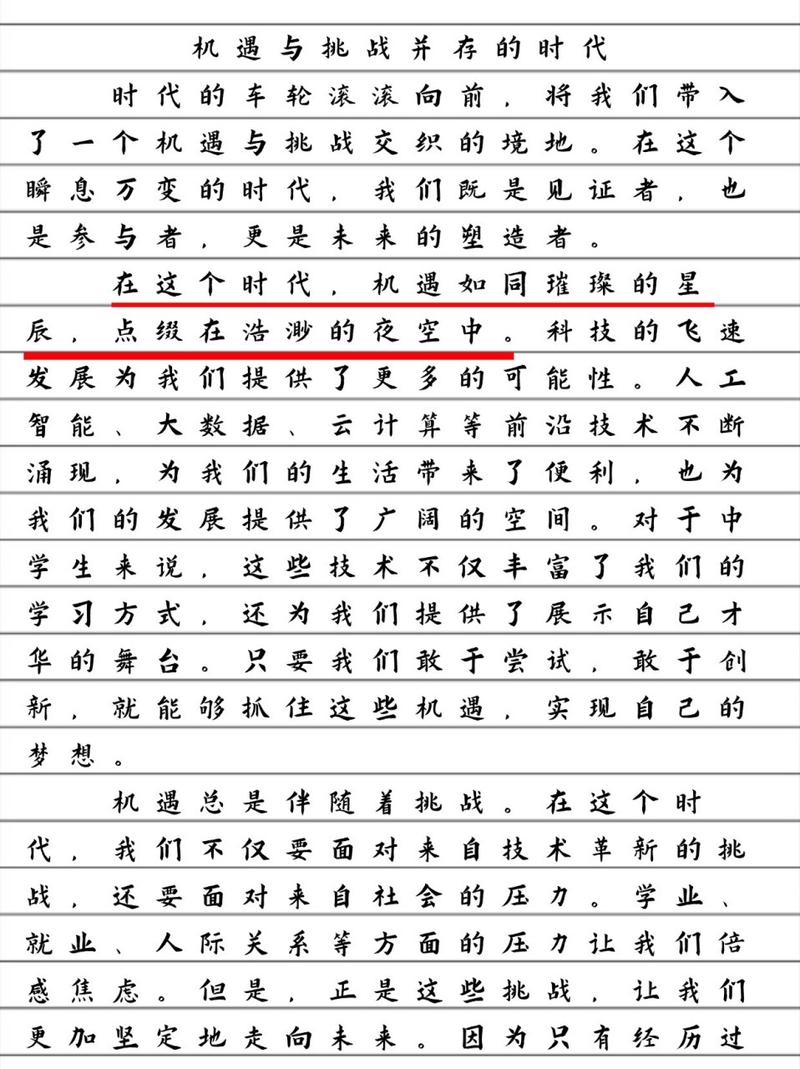 机遇与挑战并存的时代
时代的车轮滚滚向前，将我们带入
了一个机遇与挑战交织的境地。在这个
瞬息万变的时代，我们既是见证者，也
是参与者，更是未来的塑造者。
在这个时代，机遇如同璀璨的星
辰，点缀在浩渺的夜空中。科技的飞速
发展为我们提供了更多的可能性。人工
智能、大数据、云计算等前沿技术不断
涌现，为我们的生活带来了便利，也为
我们的发展提供了广阔的空间。对于中
学生来说，这些技术不仅丰富了我们的
学习方式，还为我们提供了展示自己才
华的舞台。只要我们敢于尝试，敢于创
新，就能够抓住这些机遇，实现自己的
梦想。
机遇总是伴随着挑战。在这个时
代，我们不仅要面对来自技术革新的挑
战，还要面对来自社会的压力。学业、
就业、人际关系等方面的压力让我们倍
感焦虑。但是，正是这些挑战，让我们
更加坚定地走向未来。因为只有经历过